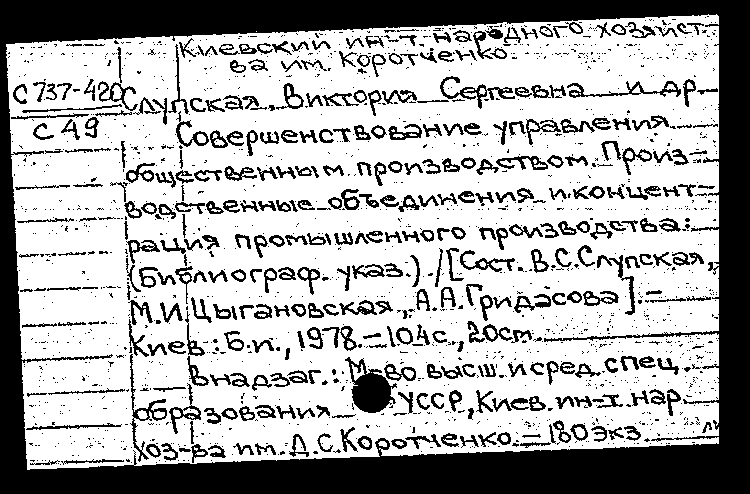 Киевский ин-т. народного хозяйст-
ва им. Коротченко.
С 737-420 Слупская, Виктория Сергеевна и др.
С 49 Совершенствование управления
общественным производством. Произ-
водственные объединения и концент-
рация промышленного производства:
(Библиограф. указ.). /[Сост. В.С.Слупская,
М.И.Цыгановская, А.А.Гридасова]. —
Киев: Б.и., 1978. — 104с., 20см.
В надзаг.: М-во высш. и сред. спец.
образования УССР, Киев. ин-т. нар.
хоз-ва им. Д.С.Коротченко. — 180 экз.